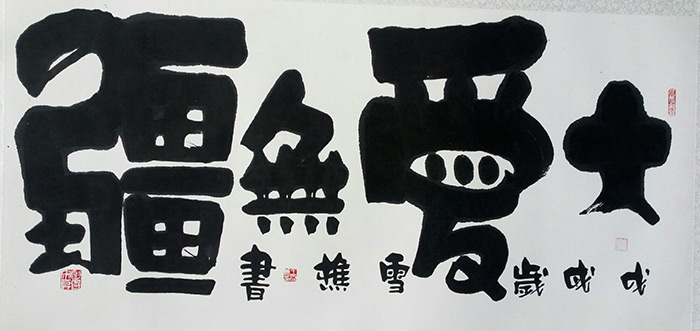 大愛無疆
戊戌歲雪樵書